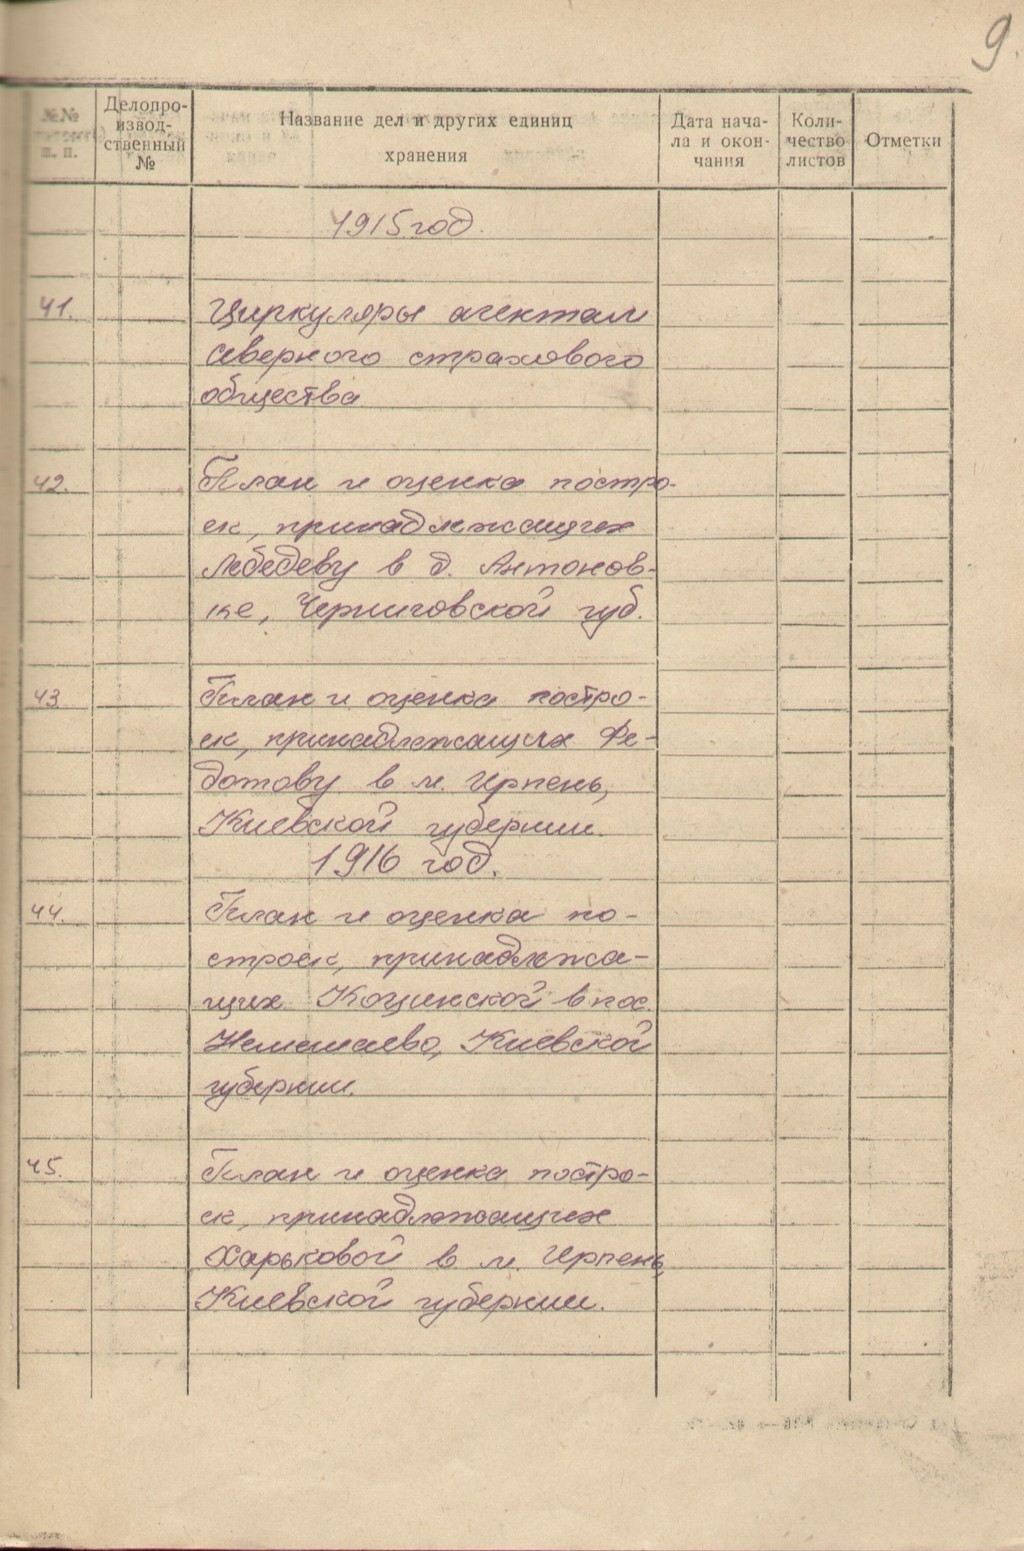 9.
№№ п. п.
Делопро-
извод-
ственный
№
Название дел и других единиц
хранения
Дата нача-
ла и окон-
чания
Коли-
чество
листов
Отметки
1915 год.
41. Циркуляры агентам
северного страхового
общества
42. План и оценка постро-
ек, принадлежащих
Лебедеву в д. Антонов-
ке, Черниговской губ.
43. План и оценка постро-
ек, принадлежащих Фе-
дотову в м. Ирпень,
Киевской губернии.
1916 год.
44. План и оценка по-
строек, принадлежа-
щих Коцинской в пос.
Немешаево, Киевской
губернии.
45. План и оценка постро-
ек, принадлежащих
Харьковой в м. Ирпень,
Киевской губернии.